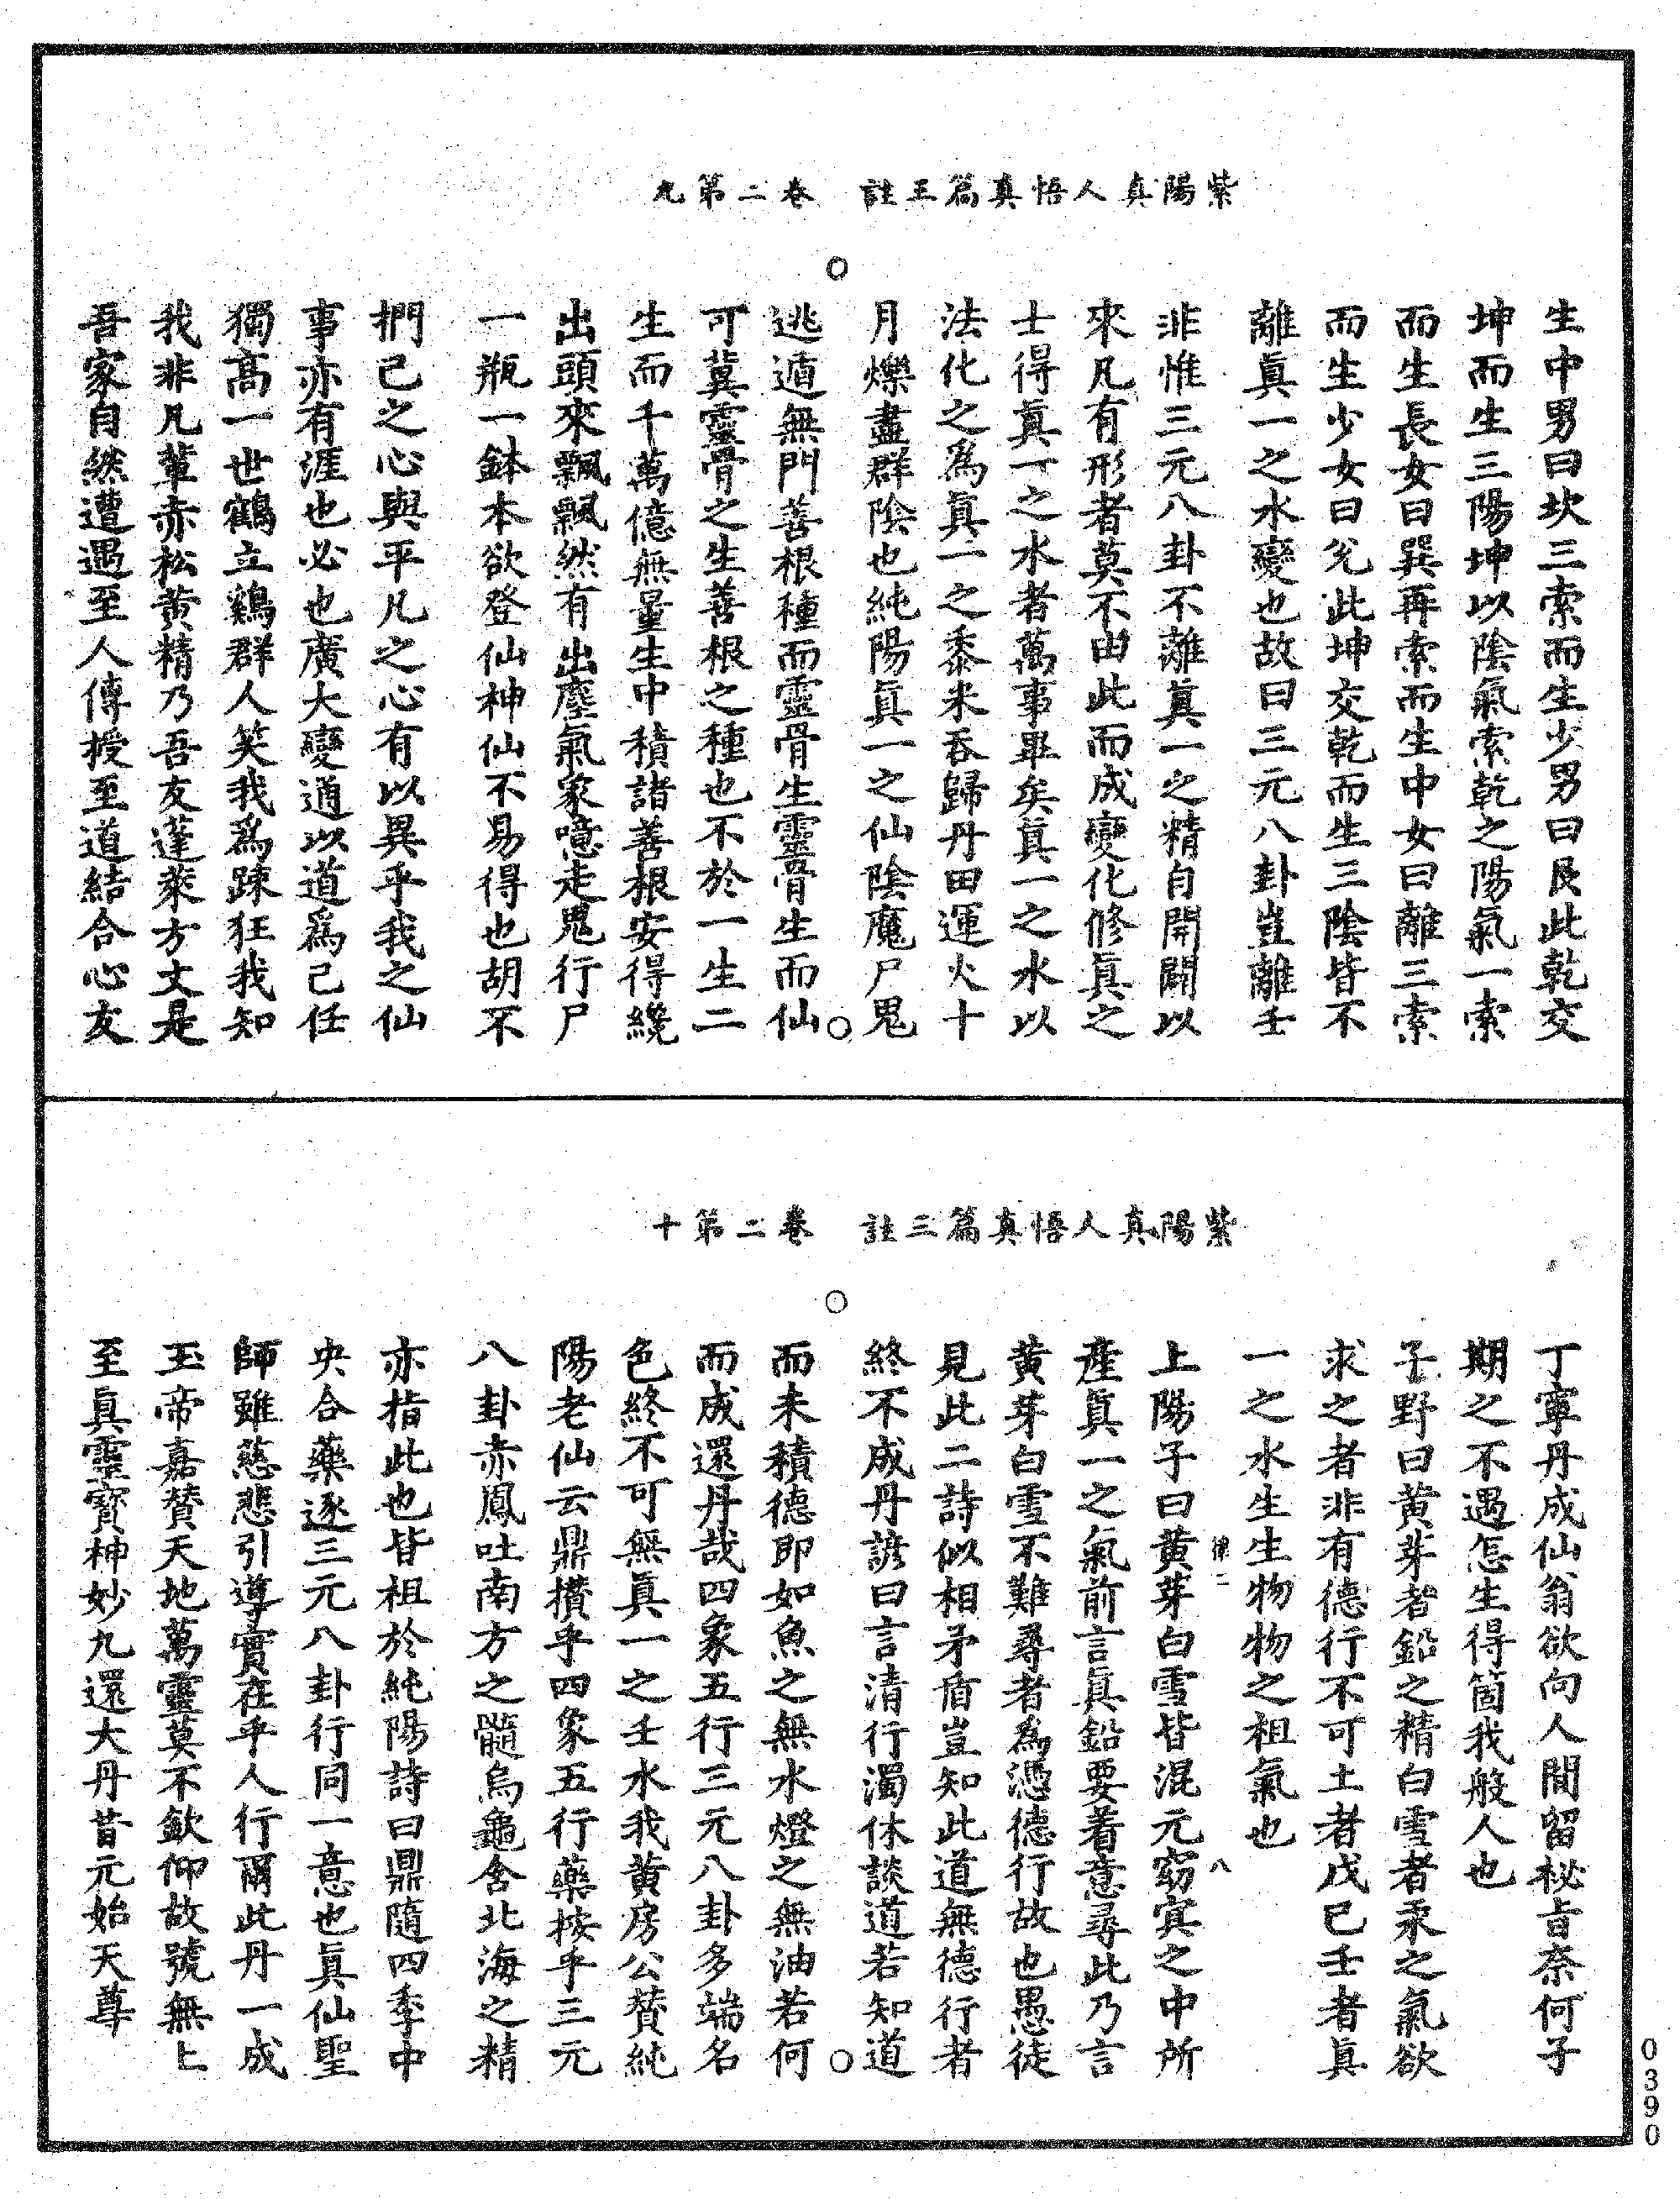 紫陽真人悟真篇三註　卷二第九
生中男曰坎三索而生少男曰艮此乾交
坤而生三陽坤以陰氣索乾之陽氣一索
而生長女曰巽再索而生中女曰離三索
而生少女曰兊此坤交乾而生三陰皆不
離眞一之水變也故曰三元八卦豈離壬
非惟三元八卦不離眞一之精自開闢以
來凡有形者莫不由此而成變化修眞之
士得眞一之水者萬事畢矣眞一之水以
法化之爲眞一之黍米吞歸丹田運火十
月爍盡群陰也純陽眞一之仙陰魔尸鬼
逃遁無門善根種而靈骨生靈骨生而仙
可冀靈骨之生善根之種也不於一生二
生而千萬億無量生中積諸善根安得纔
出頭來飄飄然有出塵氣象噫走鬼行尸
一瓶一鉢本欲登仙神仙不易得也胡不
捫己之心與平凡之心有以異乎我之仙
事亦有涯也必也廣大變通以道爲己任
獨高一世鶴立鷄群人笑我爲踈狂我知
我非凡輩赤松黃精乃吾友蓬萊方丈是
吾家自然遭遇至人傳授至道結合心友
紫陽真人悟真篇三註　卷二第十
丁寧丹成仙翁欲向人間留秘旨奈何子
期之不遇怎生得箇我般人也
子野曰黄芽者鉛之精白雪者汞之氣欲
求之者非有德行不可土者戊己壬者眞
一之水生生物物之祖氣也
律二　八
上陽子曰黄芽白雪皆混元窈冥之中所
產眞一之氣前言眞鉛要着意尋此乃言
黄芽白雪不難尋者為憑德行故也愚徒
見此二詩似相矛盾豈知此道無德行者
終不成丹諺曰言清行濁休談道若知道
而未積德即如魚之無水燈之無油若何
而成還丹哉四象五行三元八卦多端名
色終不可無眞一之壬水我黄房公賛純
陽老仙云鼎攢乎四象五行藥按乎三元
八卦赤鳳吐南方之髓烏龜含北海之精
亦指此也皆祖於純陽詩曰鼎隨四季中
央合藥逐三元八卦行同一意也眞仙聖
師雖慈悲引導實在乎人行爾此丹一成
玉帝嘉賛天地萬靈莫不欽仰故號無上
至眞靈寶神妙九還大丹昔元始天尊
0390